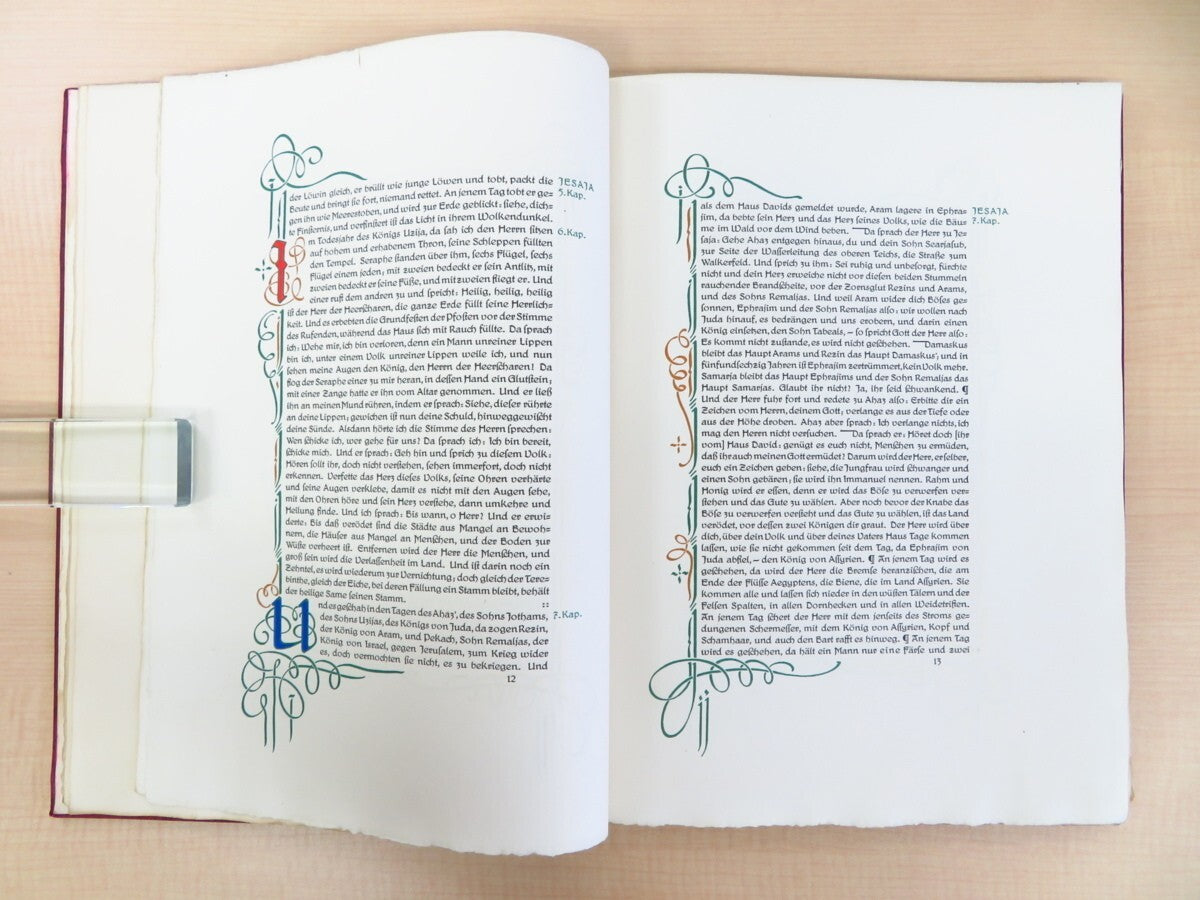 der Löwin gleich, er brüllt wie junge Löwen und tobt, packt die JESAJA
Beute und bringt sie fort, niemand rettet. An jenem Tag tobt er ge= 5. Kap.
gen ihn wie Meerestoben, und wird zur Erde geblickt: siehe, dich=
te Finsternis, und verfinstert ist das Licht in ihrem Wolkendunkel.
Im Todesjahre des Königs Uzija, da sah ich den Herrn sitzen 6. Kap.
auf hohem und erhabenem Thron, seine Schleppen füllten
den Tempel. Seraphe standen über ihm, sechs Flügel, sechs
Flügel einem jeden; mit zweien bedeckt er sein Antlitz, mit
zweien bedeckt er seine Füße, und mit zweien fliegt er. Und
einer ruft dem andren zu und spricht: Heilig, heilig, heilig
ist der Herr der Heerscharen, die ganze Erde füllt seine Herrlich=
keit. Und es erbebten die Grundfesten der Pfosten vor der Stimme
des Rufenden, während das Haus sich mit Rauch füllte. Da sprach
ich: Wehe mir, ich bin verloren, denn ein Mann unreiner Lippen
bin ich, unter einem Volk unreiner Lippen weile ich, und nun
sehen meine Augen den König, den Herrn der Heerscharen! Da
flog der Seraphe einer zu mir heran, in dessen Hand ein Glutstein;
mit einer Zange hatte er ihn vom Altar genommen. Und er ließ
ihn an meinen Mund rühren, indem er sprach: Siehe, dieser rührte
an deine Lippen; gewichen ist nun deine Schuld, hinweggewischt
deine Sünde. Alsdann hörte ich die Stimme des Herrn sprechen:
Wen schicke ich, wer gehe für uns? Da sprach ich: Ich bin bereit,
schicke mich. Und er sprach: Geh hin und sprich zu diesem Volk:
Hören sollt ihr, doch nicht verstehen, sehen immerfort, doch nicht
erkennen. Verfette das Herz dieses Volks, seine Ohren verhärte
und seine Augen verklebe, damit es nicht mit den Augen sehe,
mit den Ohren höre und sein Herz verstehe, dann umkehre und
Heilung finde. Und ich sprach: Bis wann, o Herr? Und er erwi=
derte: Bis daß verödet sind die Städte aus Mangel an Bewoh=
nern, die Häuser aus Mangel an Menschen, und der Boden zur
Wüste verheert ist. Entfernen wird der Herr die Menschen, und
groß sein wird die Verlassenheit im Land. Und ist darin noch ein
Zehntel, es wird wiederum zur Vernichtung; doch gleich der Tere=
binthe, gleich der Eiche, bei deren Fällung ein Stamm bleibt, behält
der heilige Same seinen Stamm. ::
Und es geschah in den Tagen des Ahaz', des Sohns Jothams, 7. Kap.
des Sohns Uzijas, des Königs von Juda, da zogen Rezin,
der König von Aram, und Pekach, Sohn Remaljas, der
König von Israel, gegen Jerusalem, zum Krieg wider
es, doch vermochten sie nicht, es zu bekriegen. Und
12
als dem Haus Davids gemeldet wurde, Aram lagere in Ephra= JESAJA
jim, da bebte sein Herz und das Herz seines Volks, wie die Bäu= 7. Kap.
me im Wald vor dem Wind beben. Da sprach der Herr zu Je=
saja: Gehe Ahaz entgegen hinaus, du und dein Sohn Searjasub,
zur Seite der Wasserleitung des oberen Teichs, die Straße zum
Walkerfeld. Und sprich zu ihm: Sei ruhig und unbesorgt, fürchte
nicht und dein Herz erweiche nicht vor diesen beiden Stummeln
rauchender Brandscheite, vor der Zornsglut Rezins und Arams,
und des Sohns Remaljas. Und weil Aram wider dich Böses ge=
sonnen, Ephrajim und der Sohn Remaljas also: wir wollen nach
Juda hinauf, es bedrängen und uns erobern, und darin einen
König einsetzen, den Sohn Tabeals, – so spricht Gott der Herr also:
Es kommt nicht zustande, es wird nicht geschehen. Damaskus
bleibt das Haupt Arams und Rezin das Haupt Damaskus'; und in
fünfundsechzig Jahren ist Ephrajim zertrümmert, kein Volk mehr.
Samarja bleibt das Haupt Ephrajims und der Sohn Remaljas das
Haupt Samarjas. Glaubt ihr nicht? Ja, ihr seid schwankend. ¶
Und der Herr fuhr fort und redete zu Ahaz also: Erbitte dir ein
Zeichen vom Herrn, deinem Gott; verlange es aus der Tiefe oder
aus der Höhe droben. Ahaz aber sprach: Ich verlange nichts, ich
mag den Herrn nicht versuchen. Da sprach er: Höret doch [ihr
vom] Haus David: genügt es euch nicht, Menschen zu ermüden,
daß ihr auch meinen Gott ermüdet? Darum wird der Herr, er selber,
euch ein Zeichen geben: siehe, die Jungfrau wird schwanger und
einen Sohn gebären; sie wird ihn Immanuel nennen. Rahm und
Honig wird er essen, denn er wird das Böse zu verwerfen ver=
stehen und das Gute zu wählen. Aber noch bevor der Knabe das
Böse zu verwerfen versteht und das Gute zu wählen, ist das Land
verödet, vor dessen zwei Königen dir graut. Der Herr wird über
dich, über dein Volk und über deines Vaters Haus Tage kommen
lassen, wie sie nicht gekommen seit dem Tag, da Ephrajim von
Juda abfiel, – den König von Assyrien. ¶ An jenem Tag wird es
geschehen, da wird der Herr die Bremse heranzischen, die am
Ende der Flüsse Aegyptens, die Biene, die im Land Assyrien. Sie
kommen alle und lassen sich nieder in den wüsten Tälern und der
Felsen Spalten, in allen Dornhecken und in allen Weidetriften.
An jenem Tag schert der Herr mit dem jenseits des Stroms ge=
dungenen Schermesser, mit dem König von Assyrien, Kopf und
Schamhaar, und auch den Bart rafft es hinweg. ¶ An jenem Tag
wird es geschehen, da hält ein Mann nur eine Färse und zwei
13